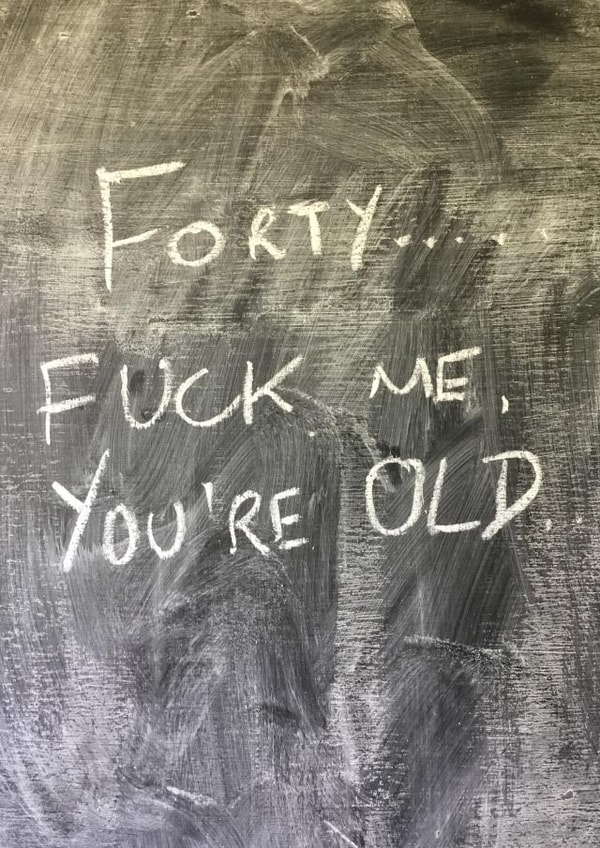 FORTY.....
FUCK ME,
YOU'RE OLD..